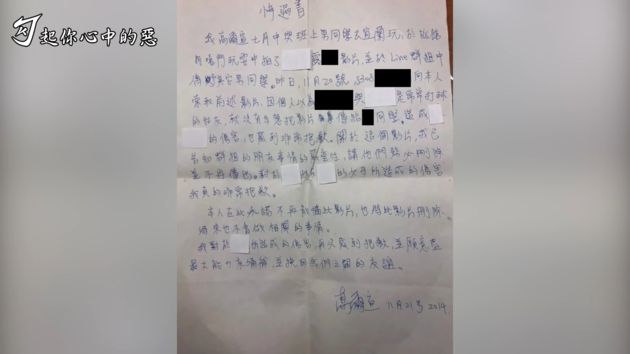 勾起你心中的惡
悔過書
我高爾宣七月中與班上男同學去宜蘭玩，
玩笑中拍了 影片，並於Line群組中
男同學。昨日，11月20號， 向本人
索取前述影片，因個人以為 與 是常常打球
的好友，就沒有多想把影片 傳給 同學。造成
的傷害，也感到非常抱歉。關於這個影片，我已
告知群組的朋友事情的嚴重性，請他們務必刪除
並不再傳他。對於 所造成的傷害
我真的非常抱歉。
本人在此承諾不再散播此影片，也將此影片刪除，
將來也不會做相關的事情。
我對於 所造成的傷害，再次感到抱歉，並願意盡
最大能力 彌補，並挽回我們之間的友誼。
高爾宣 11月21號 2014